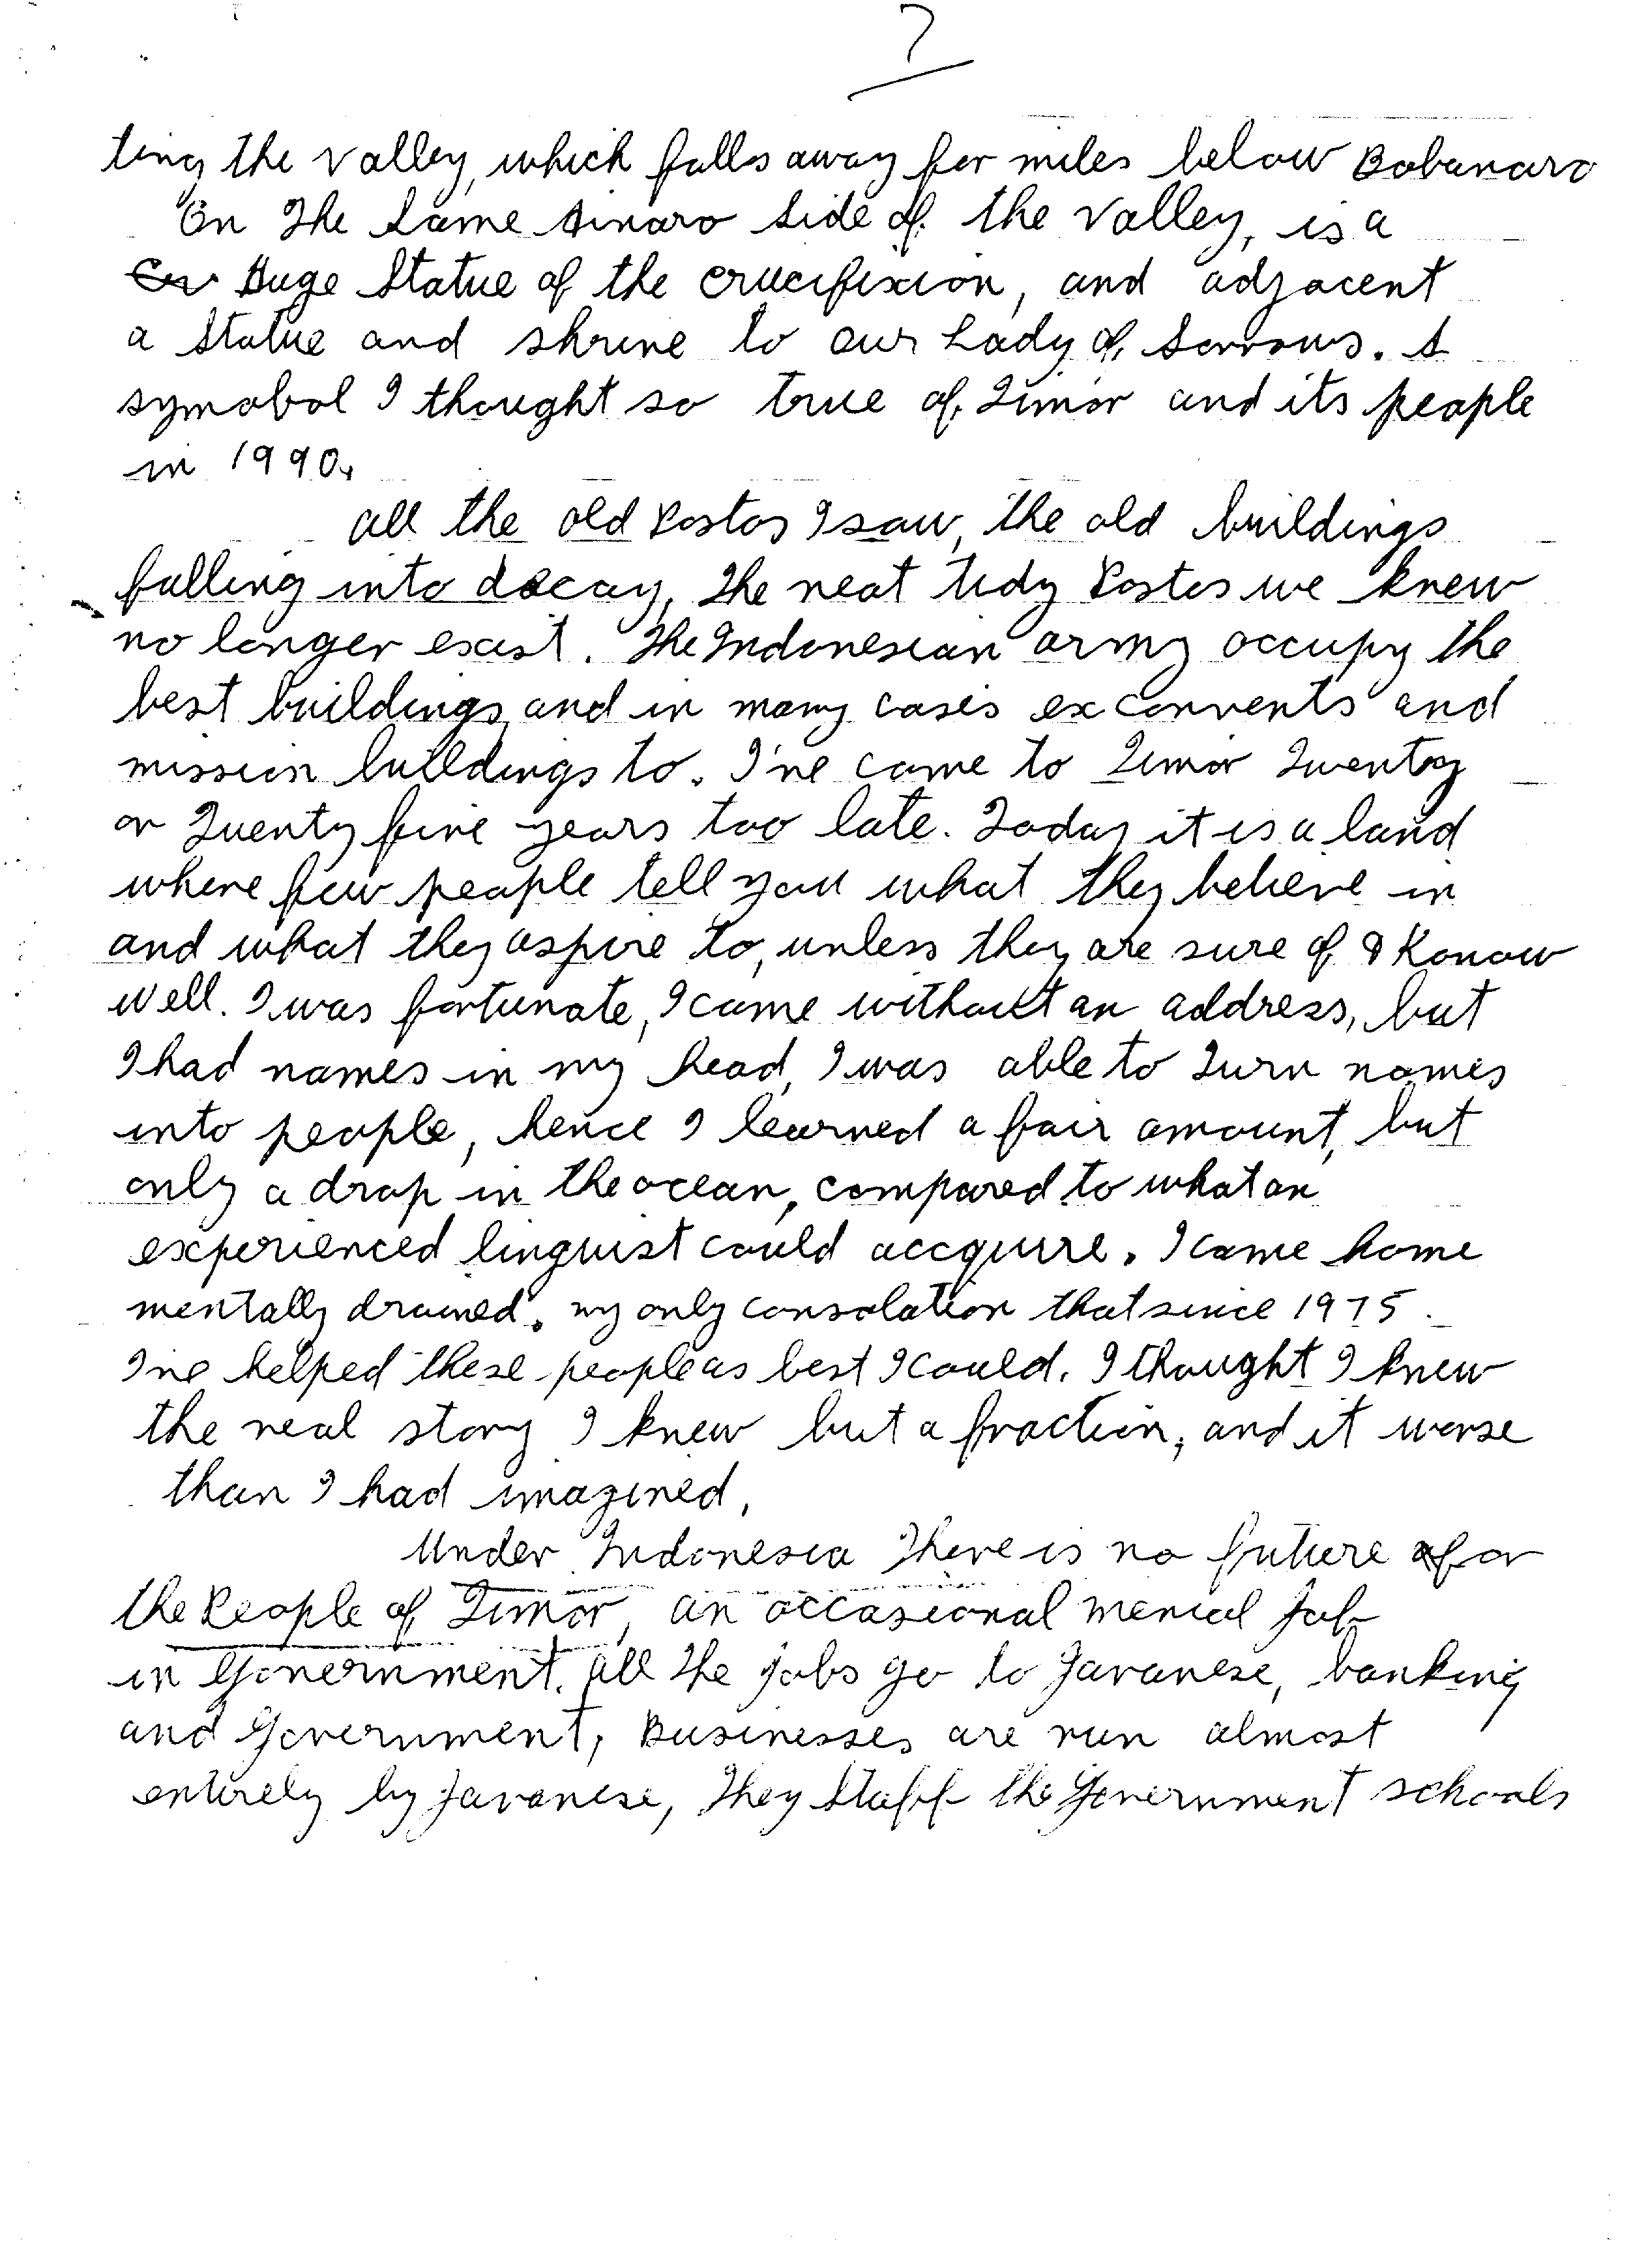 7
ting the valley, which falls away for miles below Bobanaro
On The Same Ainaro Side of the valley, is a
Huge Statue of the crucifixion, and adjacent
a Statue and shrine to our Lady of Sorrows. A
symobol I thought so true of Timor and its people
in 1990.
All the old Postos I saw, the old buildings
falling into decay, The neat tidy Postos we knew
no longer exist. The Indonesian army occupy the
best buildings, and in many cases ex convents and
mission buildings to. I've came to Timor Twenty
or Twenty five years too late. Today it is a land
where few people tell you what they believe in
and what they aspire to, unless they are sure of & Konow
well. I was fortunate, I came without an address, but
I had names in my head, I was able to Turn names
into people, hence I learned a fair amount, but
only a drop in the ocean, compared to what an
experienced linguist could accquire. I came home
mentally drained. my only consolation that since 1975
I've helped these people as best I could. I thought I knew
the real story I knew but a fraction, and it worse
than I had imagined.
Under Indonesia There is no future for
the People of Timor, an occasional menial Job
in Government. All The jobs go to Javanese, banking
and Government, Businesses are run almost
entirely by Javanese, They Staff the Government schools